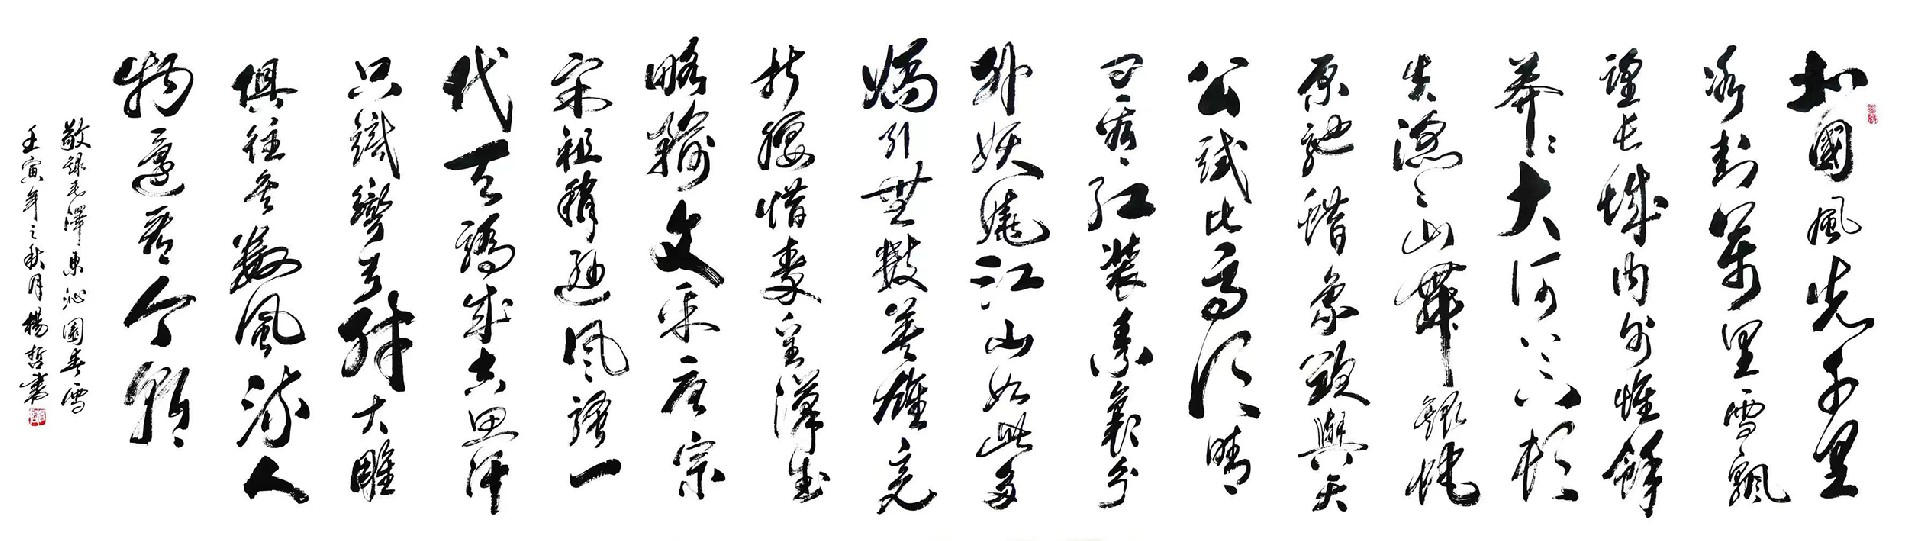 北國風光千里
冰封萬里雪飄
望長城內外惟餘
莽〻大河上下頓
失滔〻山舞銀蛇
原馳蠟象欲與天
公試比高須晴
日看紅裝素裹分
外妖嬈江山如此多
嬌引無數英雄競
折腰惜秦皇漢武
略輸文采唐宗
宋祖稍遜風騷一
代天驕成吉思汗
只識彎弓射大雕
俱往矣數風流人
物還看今朝
敬錄毛澤東沁園春雪
壬寅年之秋月楊哲書